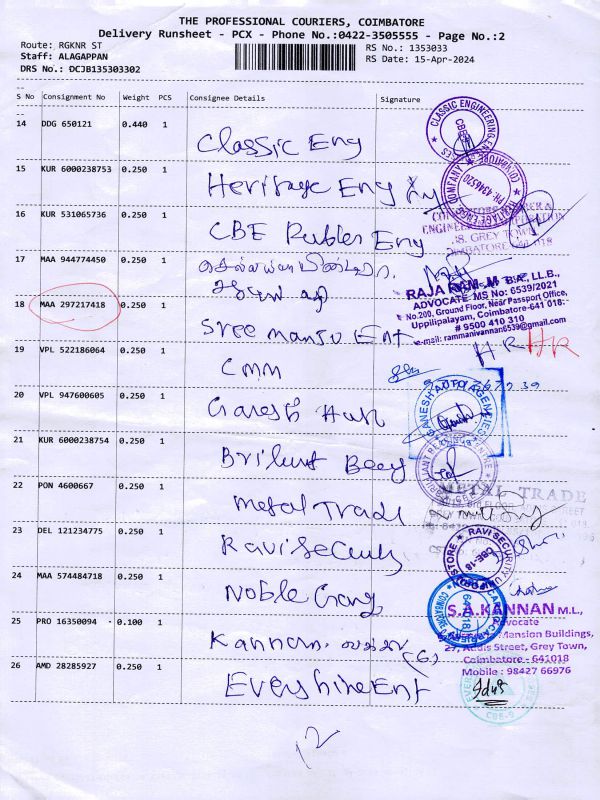 THE PROFESSIONAL COURIERS, COIMBATORE
Delivery Runsheet - PCX - Phone No.:0422-3505555 - Page No.:2
Route: RGKNR ST
RS No.: 1353033
Staff: ALAGAPPAN
RS Date: 15-Apr-2024
DRS No.: DCJB135303302
S No Consignment No Weight PCS Consignee Details Signature
14 DDG 650121 0.440 1
Classic Eng
CLASSIC ENGINEERING
15 KUR 6000238753 0.250 1
Heritage Eng
HERITAGE ENGG COMPANY
PH: 4346520
16 KUR 531065736 0.250 1
CBE Rubber Eng
38, GREY TOWN
COIMBATORE 641 018
17 MAA 944774450 0.250 1
RAJA RAM.M B.A., LL.B.,
ADVOCATE MS No: 6539/2021
No.200, Ground Floor, Near Passport Office,
Uppilipalayam, Coimbatore-641 018.
# 9500 410 310
e-mail: rammanivannan6539@gmail.com
18 MAA 297217418 0.250 1
Sree Mansu Ent
HR HR
19 VPL 522186064 0.250 1
CMM
20 VPL 947600605 0.250 1
Ganesh Auto
GANESH AUTO AGENCIES
21 KUR 6000238754 0.250 1
Brilunt Beey
22 PON 4600667 0.250 1
Metal Trade
METAL TRADE
23 DEL 121234775 0.250 1
Ravi Security
RAVI SECURITY
CBE-18
24 MAA 574484718 0.250 1
Noble Gang
25 PRO 16350094 0.100 1
Kannan.
(6)
S.A.KANNAN M.L.,
Advocate
Mansion Buildings,
27, Addis Street, Grey Town,
Coimbatore - 641018
Mobile : 98427 66976
26 AMD 28285927 0.250 1
Evershine Ent
12